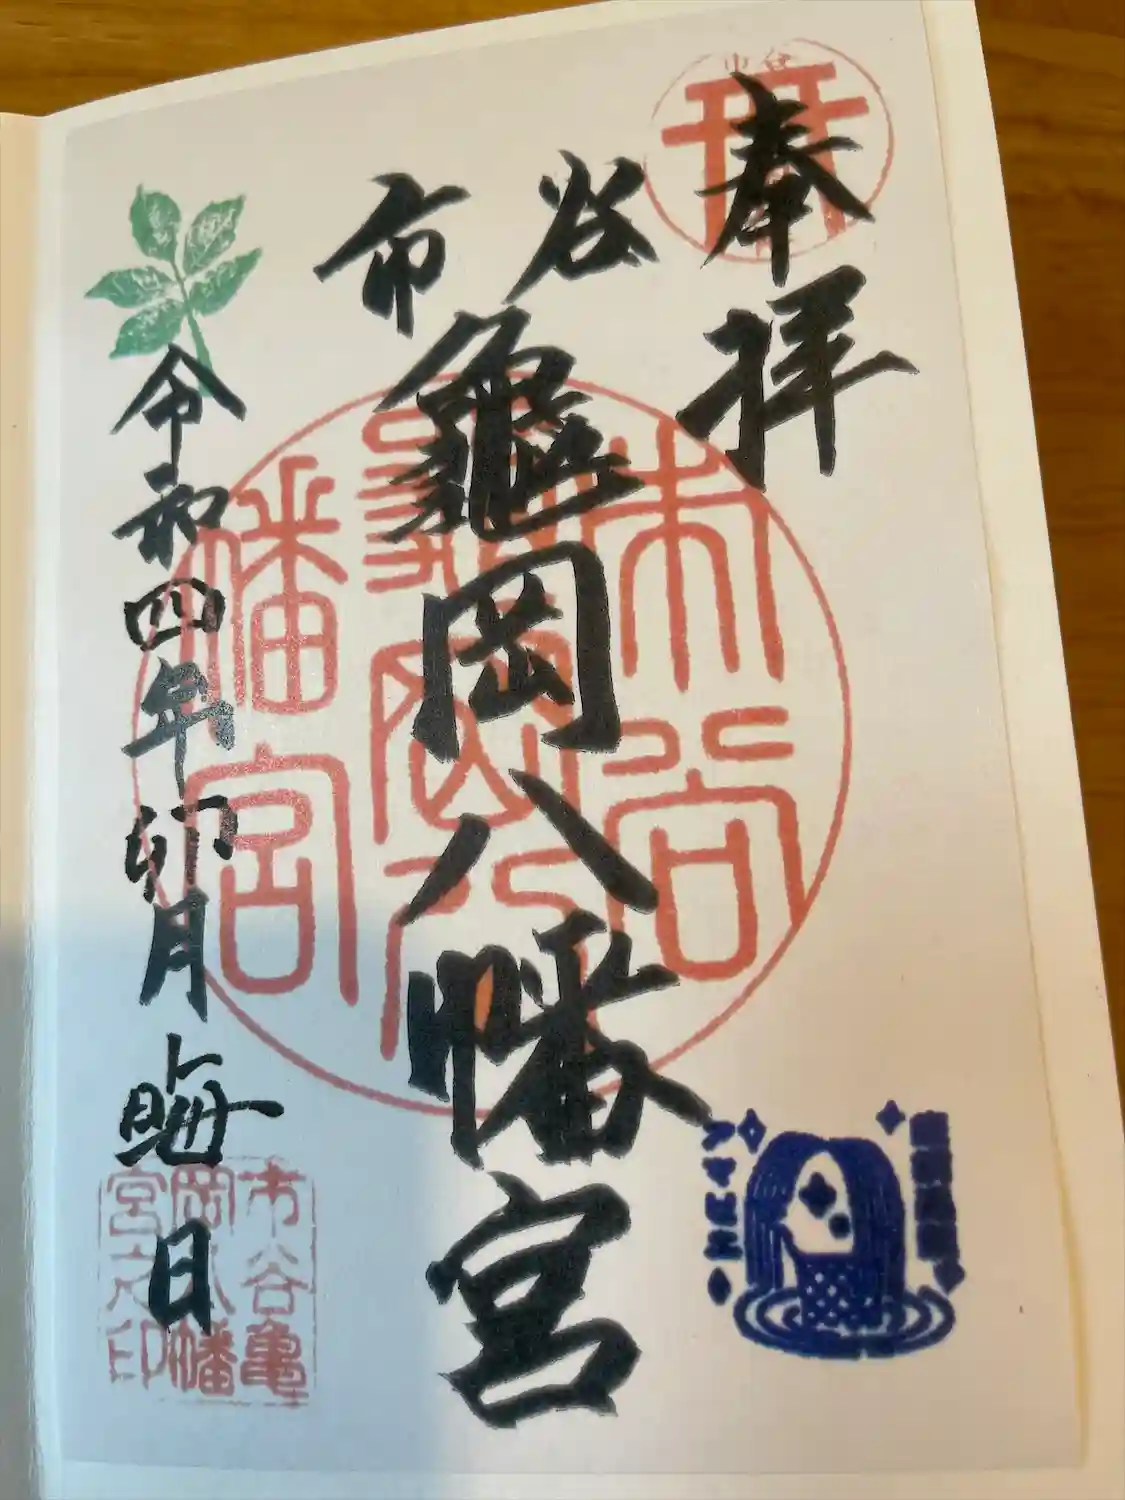 奉拝
市谷
亀岡八幡宮
令和四年卯月晦日
市谷
亀岡八
幡宮
市谷亀
岡八幡
宮之印